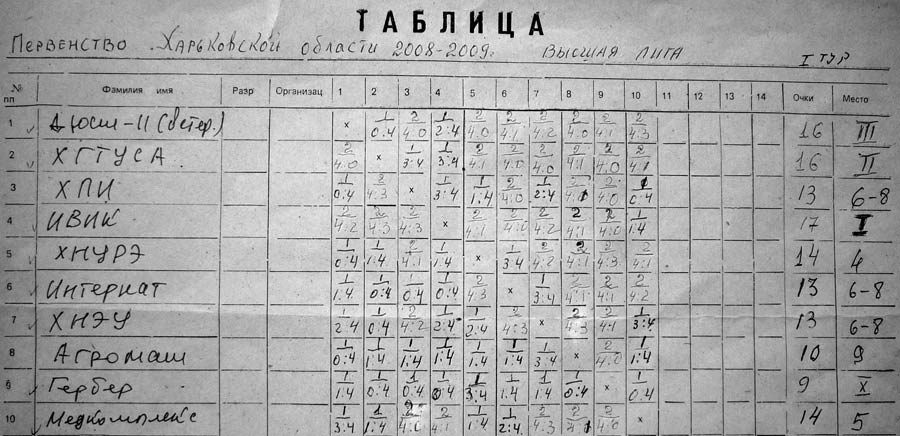 ТАБЛИЦА
Первенство Харьковской области 2008-2009г. Высшая лига I тур
№ пп Фамилия имя Разр Организац 1 2 3 4 5 6 7 8 9 10 11 12 13 14 Очки Место
1 ДЮСШ-11 (ветер.) х 1/0:4 2/4:0 1/2:4 2/4:0 2/4:1 2/4:2 2/4:0 2/4:1 2/4:3 16 III
2 ХГТУСА 2/4:0 х 1/3:4 1/3:4 2/4:1 2/4:0 2/4:0 2/4:1 2/4:0 2/4:1 16 II
3 ХПИ 1/0:4 2/4:3 х 1/3:4 1/1:4 2/4:0 1/2:4 2/4:1 2/4:0 1/0:4 13 6-8
4 ИВИК 2/4:2 2/4:3 2/4:3 х 2/4:1 2/4:0 2/4:2 2/4:1 2/4:0 1/1:4 17 I
5 ХНУРЭ 1/0:4 1/1:4 2/4:1 1/1:4 х 1/3:4 2/4:2 2/4:1 2/4:3 2/4:1 14 4
6 Интернат 1/1:4 1/0:4 1/0:4 1/0:4 2/4:3 х 1/3:4 2/4:1 2/4:1 2/4:2 13 6-8
7 ХНЭУ 1/2:4 1/0:4 2/4:2 1/2:4 1/2:4 2/4:3 х 2/4:3 2/4:1 1/3:4 13 6-8
8 Агромаш 1/0:4 1/1:4 1/1:4 1/1:4 1/1:4 1/1:4 1/3:4 х 2/4:0 1/1:4 10 9
9 Гербер 1/1:4 1/0:4 1/0:4 1/0:4 1/3:4 1/1:4 1/1:4 1/0:4 х 1/0:4 9 X
10 Медкомплекс 1/3:4 1/1:4 2/4:0 2/4:1 1/1:4 1/2:4 2/4:3 2/4:1 2/4:0 х 14 5